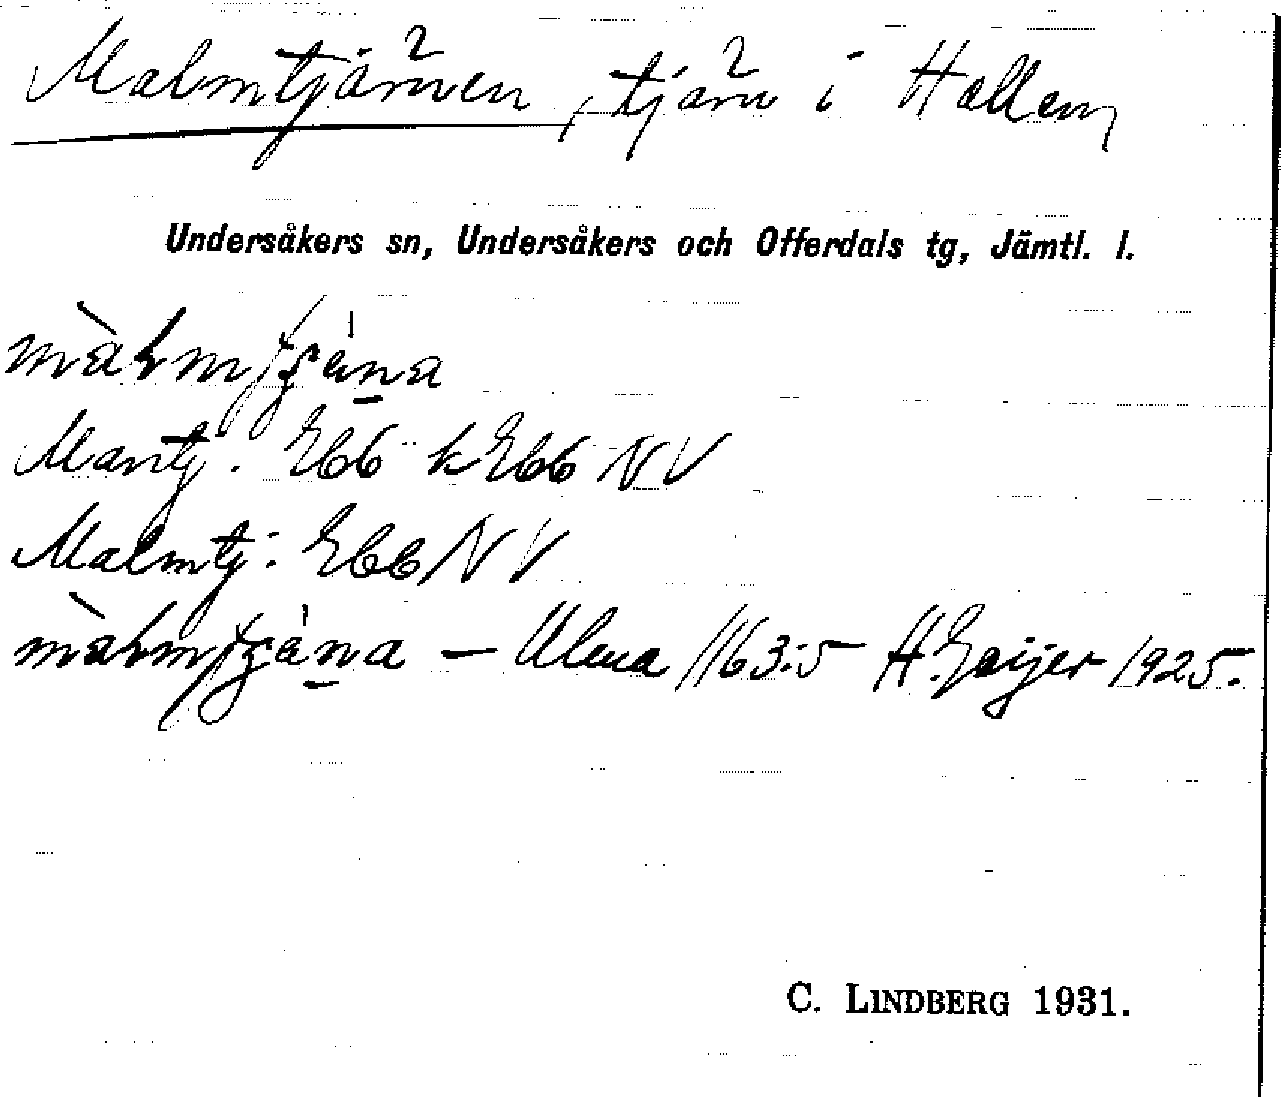 Malmtjärnen, tjärn i Hallen,
Undersåkers sn, Undersåkers och Offerdals tg, Jämtl. l.
Mantj. Ebb k Ebb NV
Malmtj: Ebb NV
— Ulma 1163:5 H. Geijer 1925.
C. LINDBERG 1931.